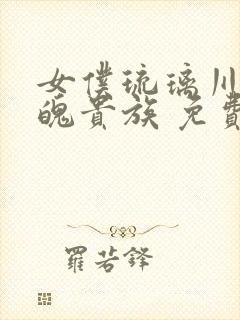 女僕琉璃川
魄貴族 免費
羅若鋒